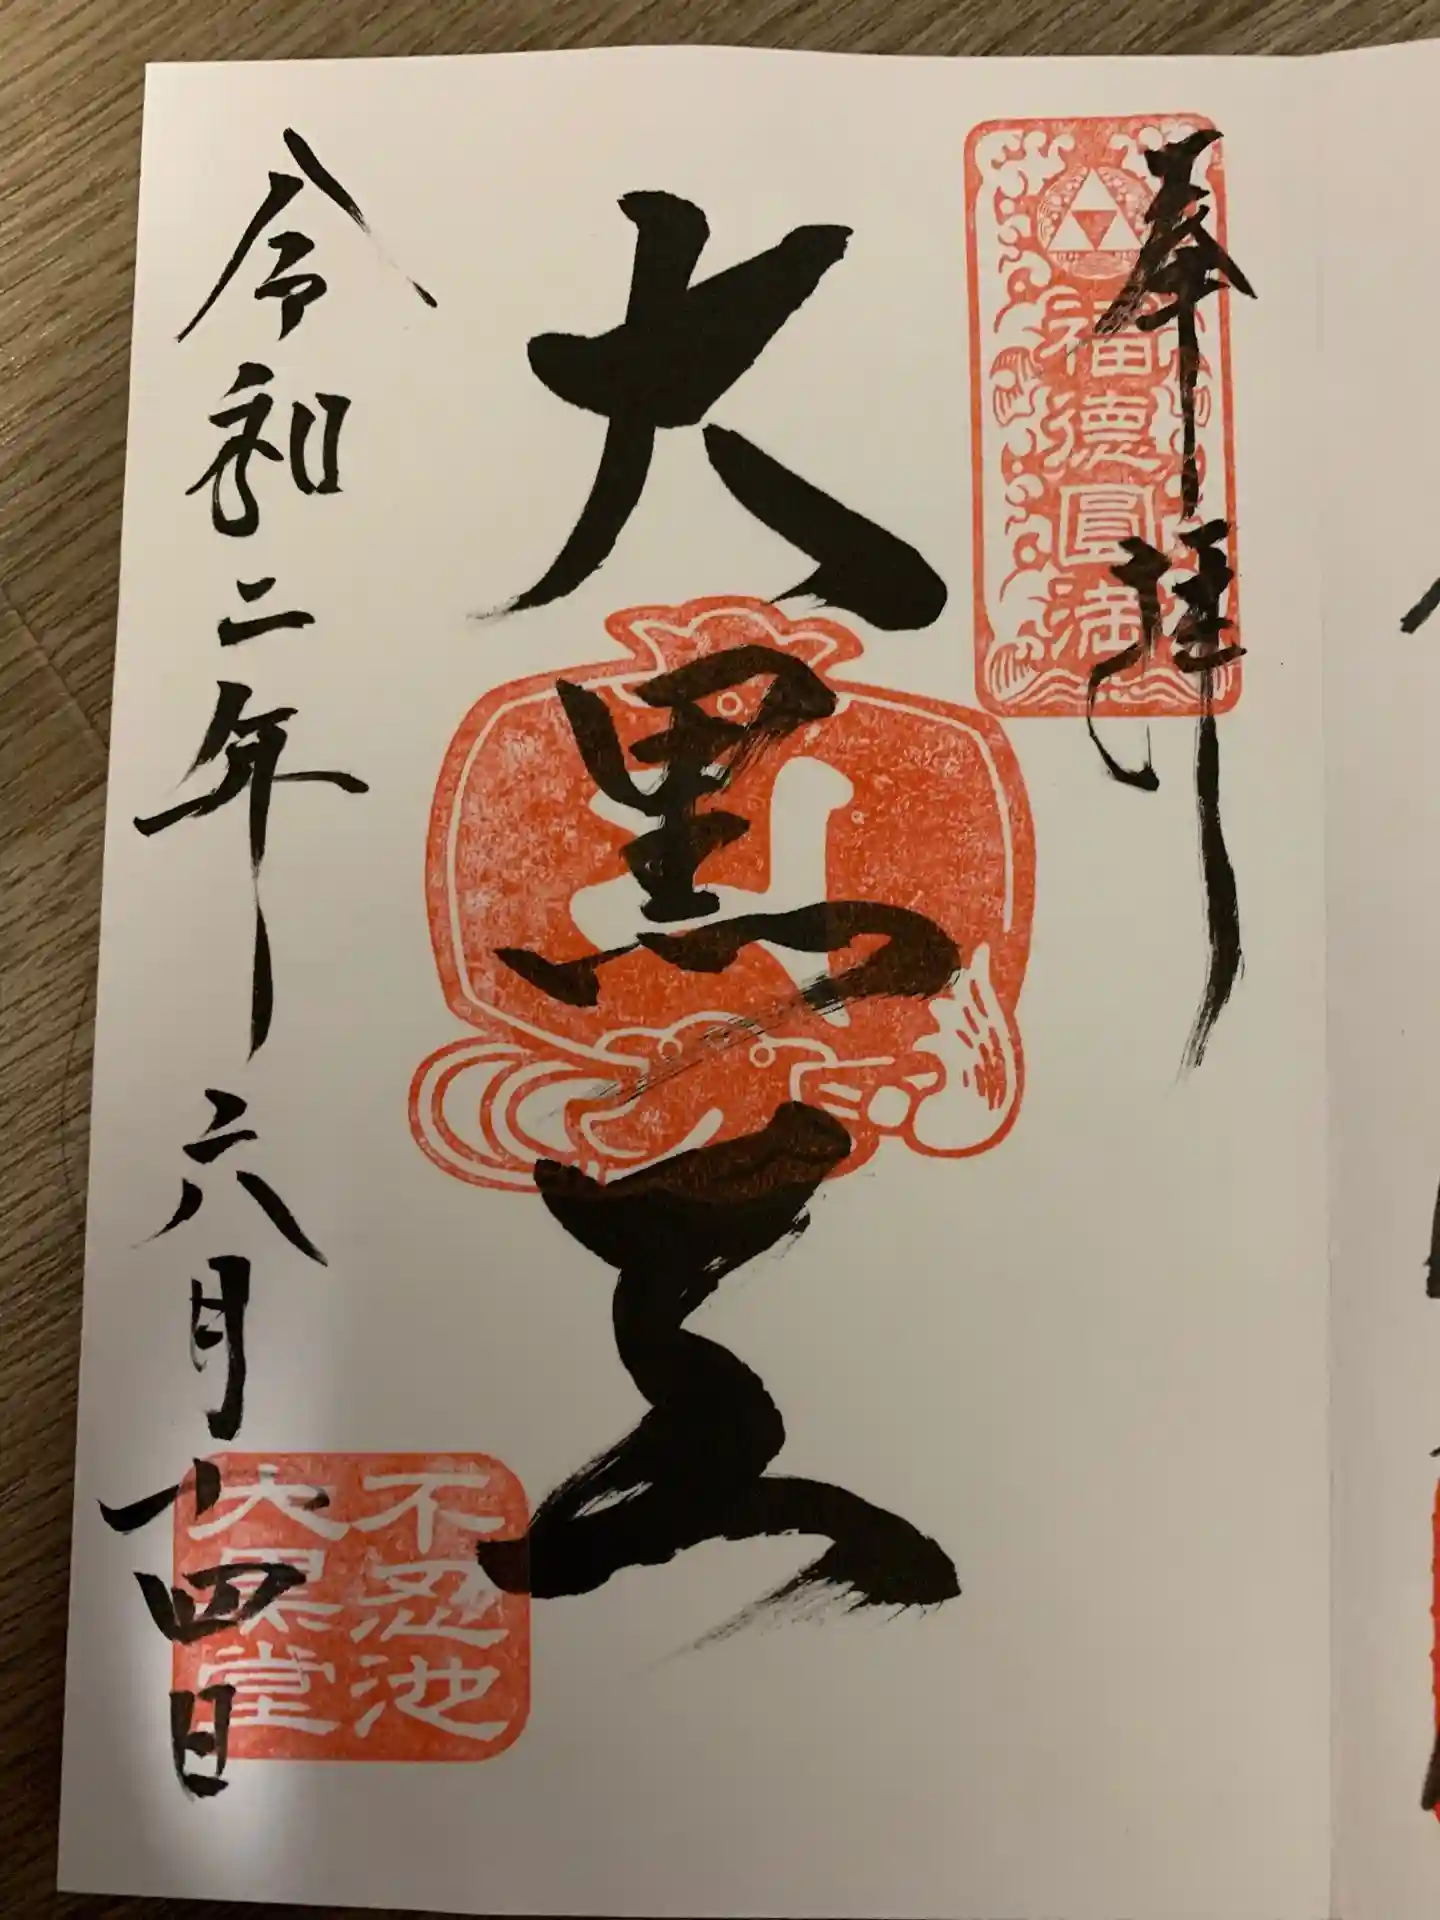 奉拝
福德圓満
大黒天
令和二年六月十四日
不忍池
大黒堂